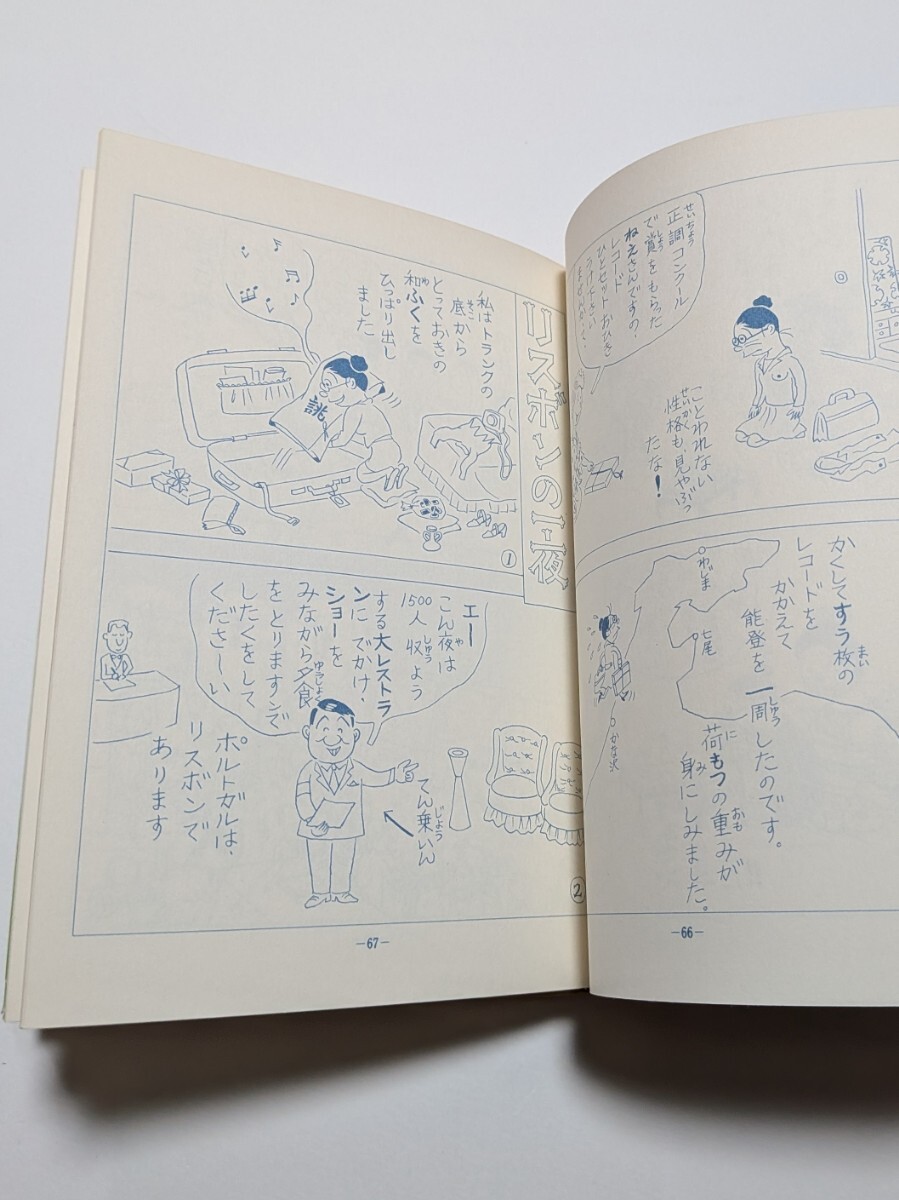 正調コンクール
で賞をもらった
ねえさんですの。
レコード
ひとセットおかき
ことわれない
性格も見やぶっ
たな！
かくしてすう枚の
レコードを
かかえて
能登を一周したのです。
荷もつの重みが
身にしみました。
わじま
七尾
かな沢
—66—
リスボンの一夜
私はトランクの
底から
とっておきの
和ふくを
ひっぱり出し
ました
誂
①
エー
こん夜は
1500人収よう
する大レストラ
ンにでかけ、
ショーを
みながら夕食
をとりますンで
したくをして
くださーい
てん乗いん
ポルトガルは、
リスボンで
あります
②
—67—